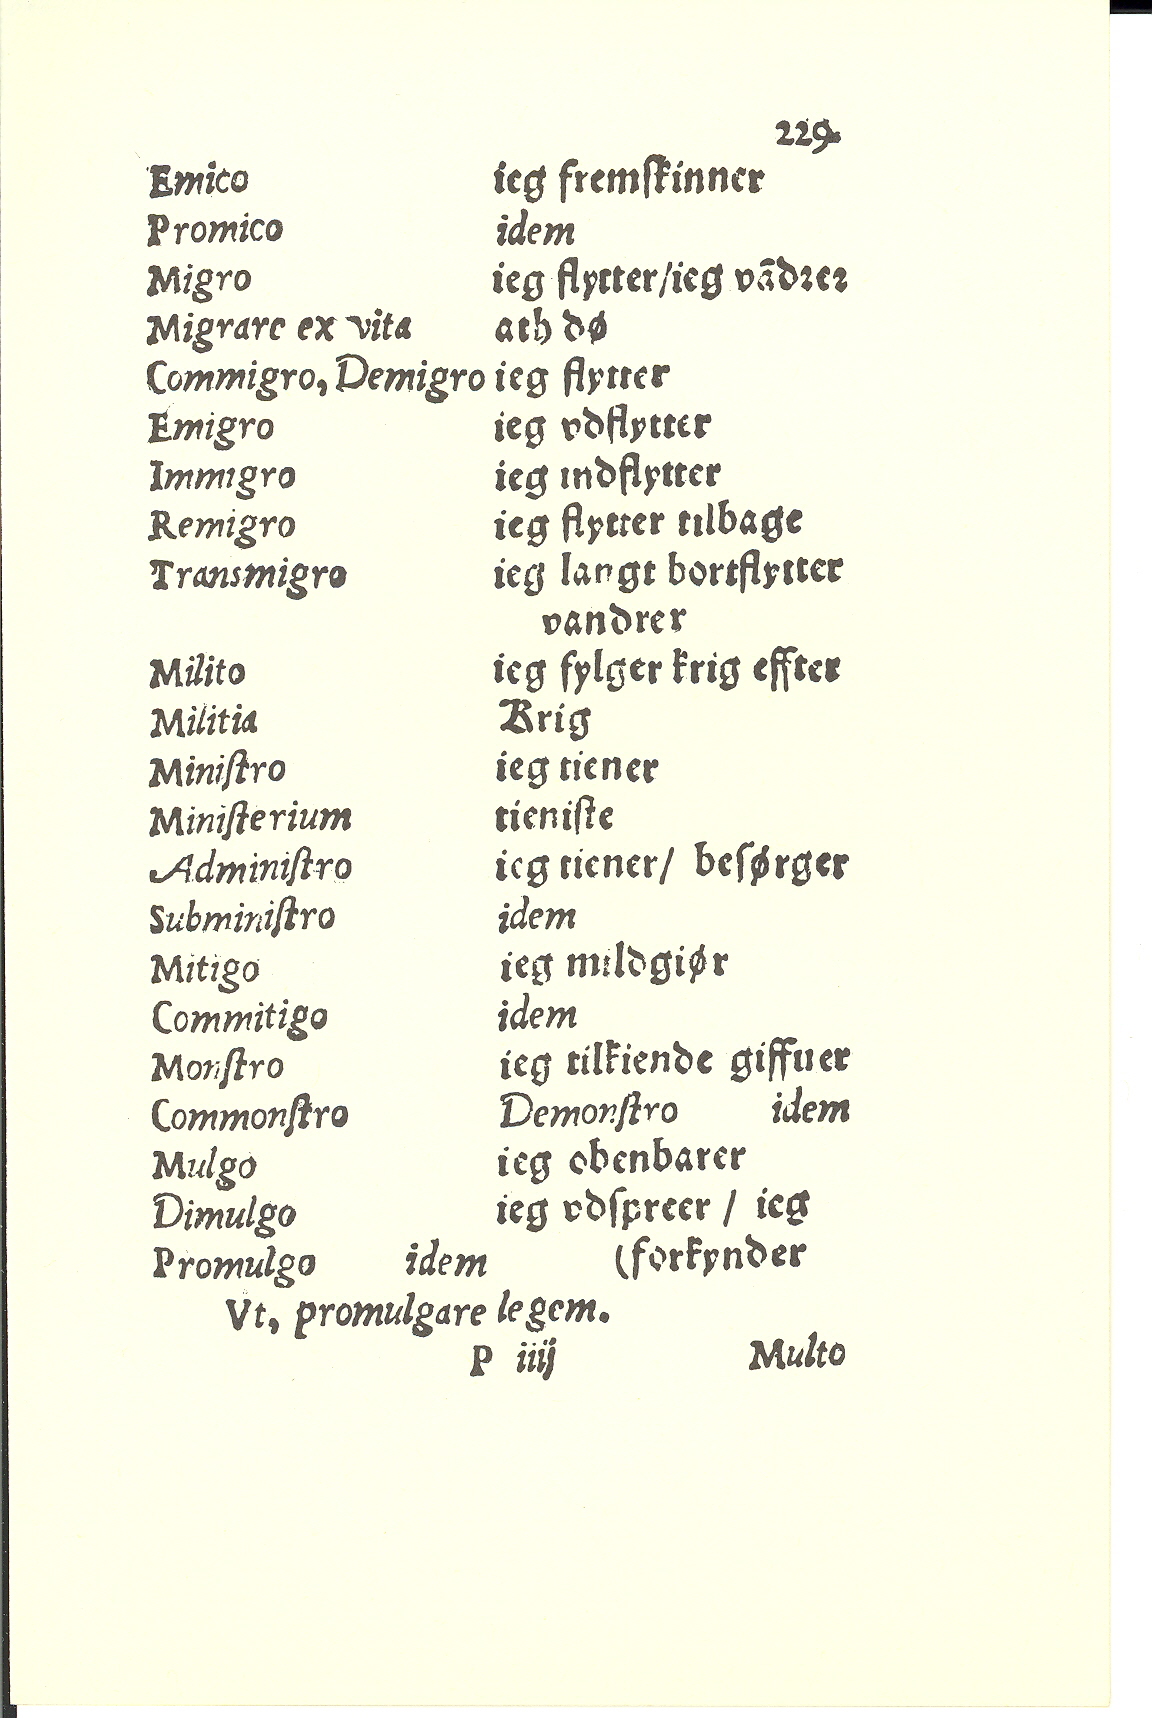 229.
Emico ieg fremſkinner
Promico idem
Migro ieg flytter/ieg vādrer
Migrare ex vita ath dø
Commigro, Demigro ieg flytter
Emigro ieg vdflytter
Immigro ieg indflytter
Remigro ieg flytter tilbage
Transmigro ieg langt bortflytter
vandrer
Milito ieg fylger krig effter
Militia Krig
Miniſtro ieg tiener
Miniſterium tieniſte
Adminiſtro ieg tiener/ beſørger
Subminiſtro idem
Mitigo ieg mildgiør
Commitigo idem
Monſtro ieg tilkiende giffuer
Commonſtro Demonſtro idem
Mulgo ieg obenbarer
Dimulgo ieg vdſpreer / ieg
Promulgo idem (forkynder
Vt, promulgare legem.
P iiij Multo